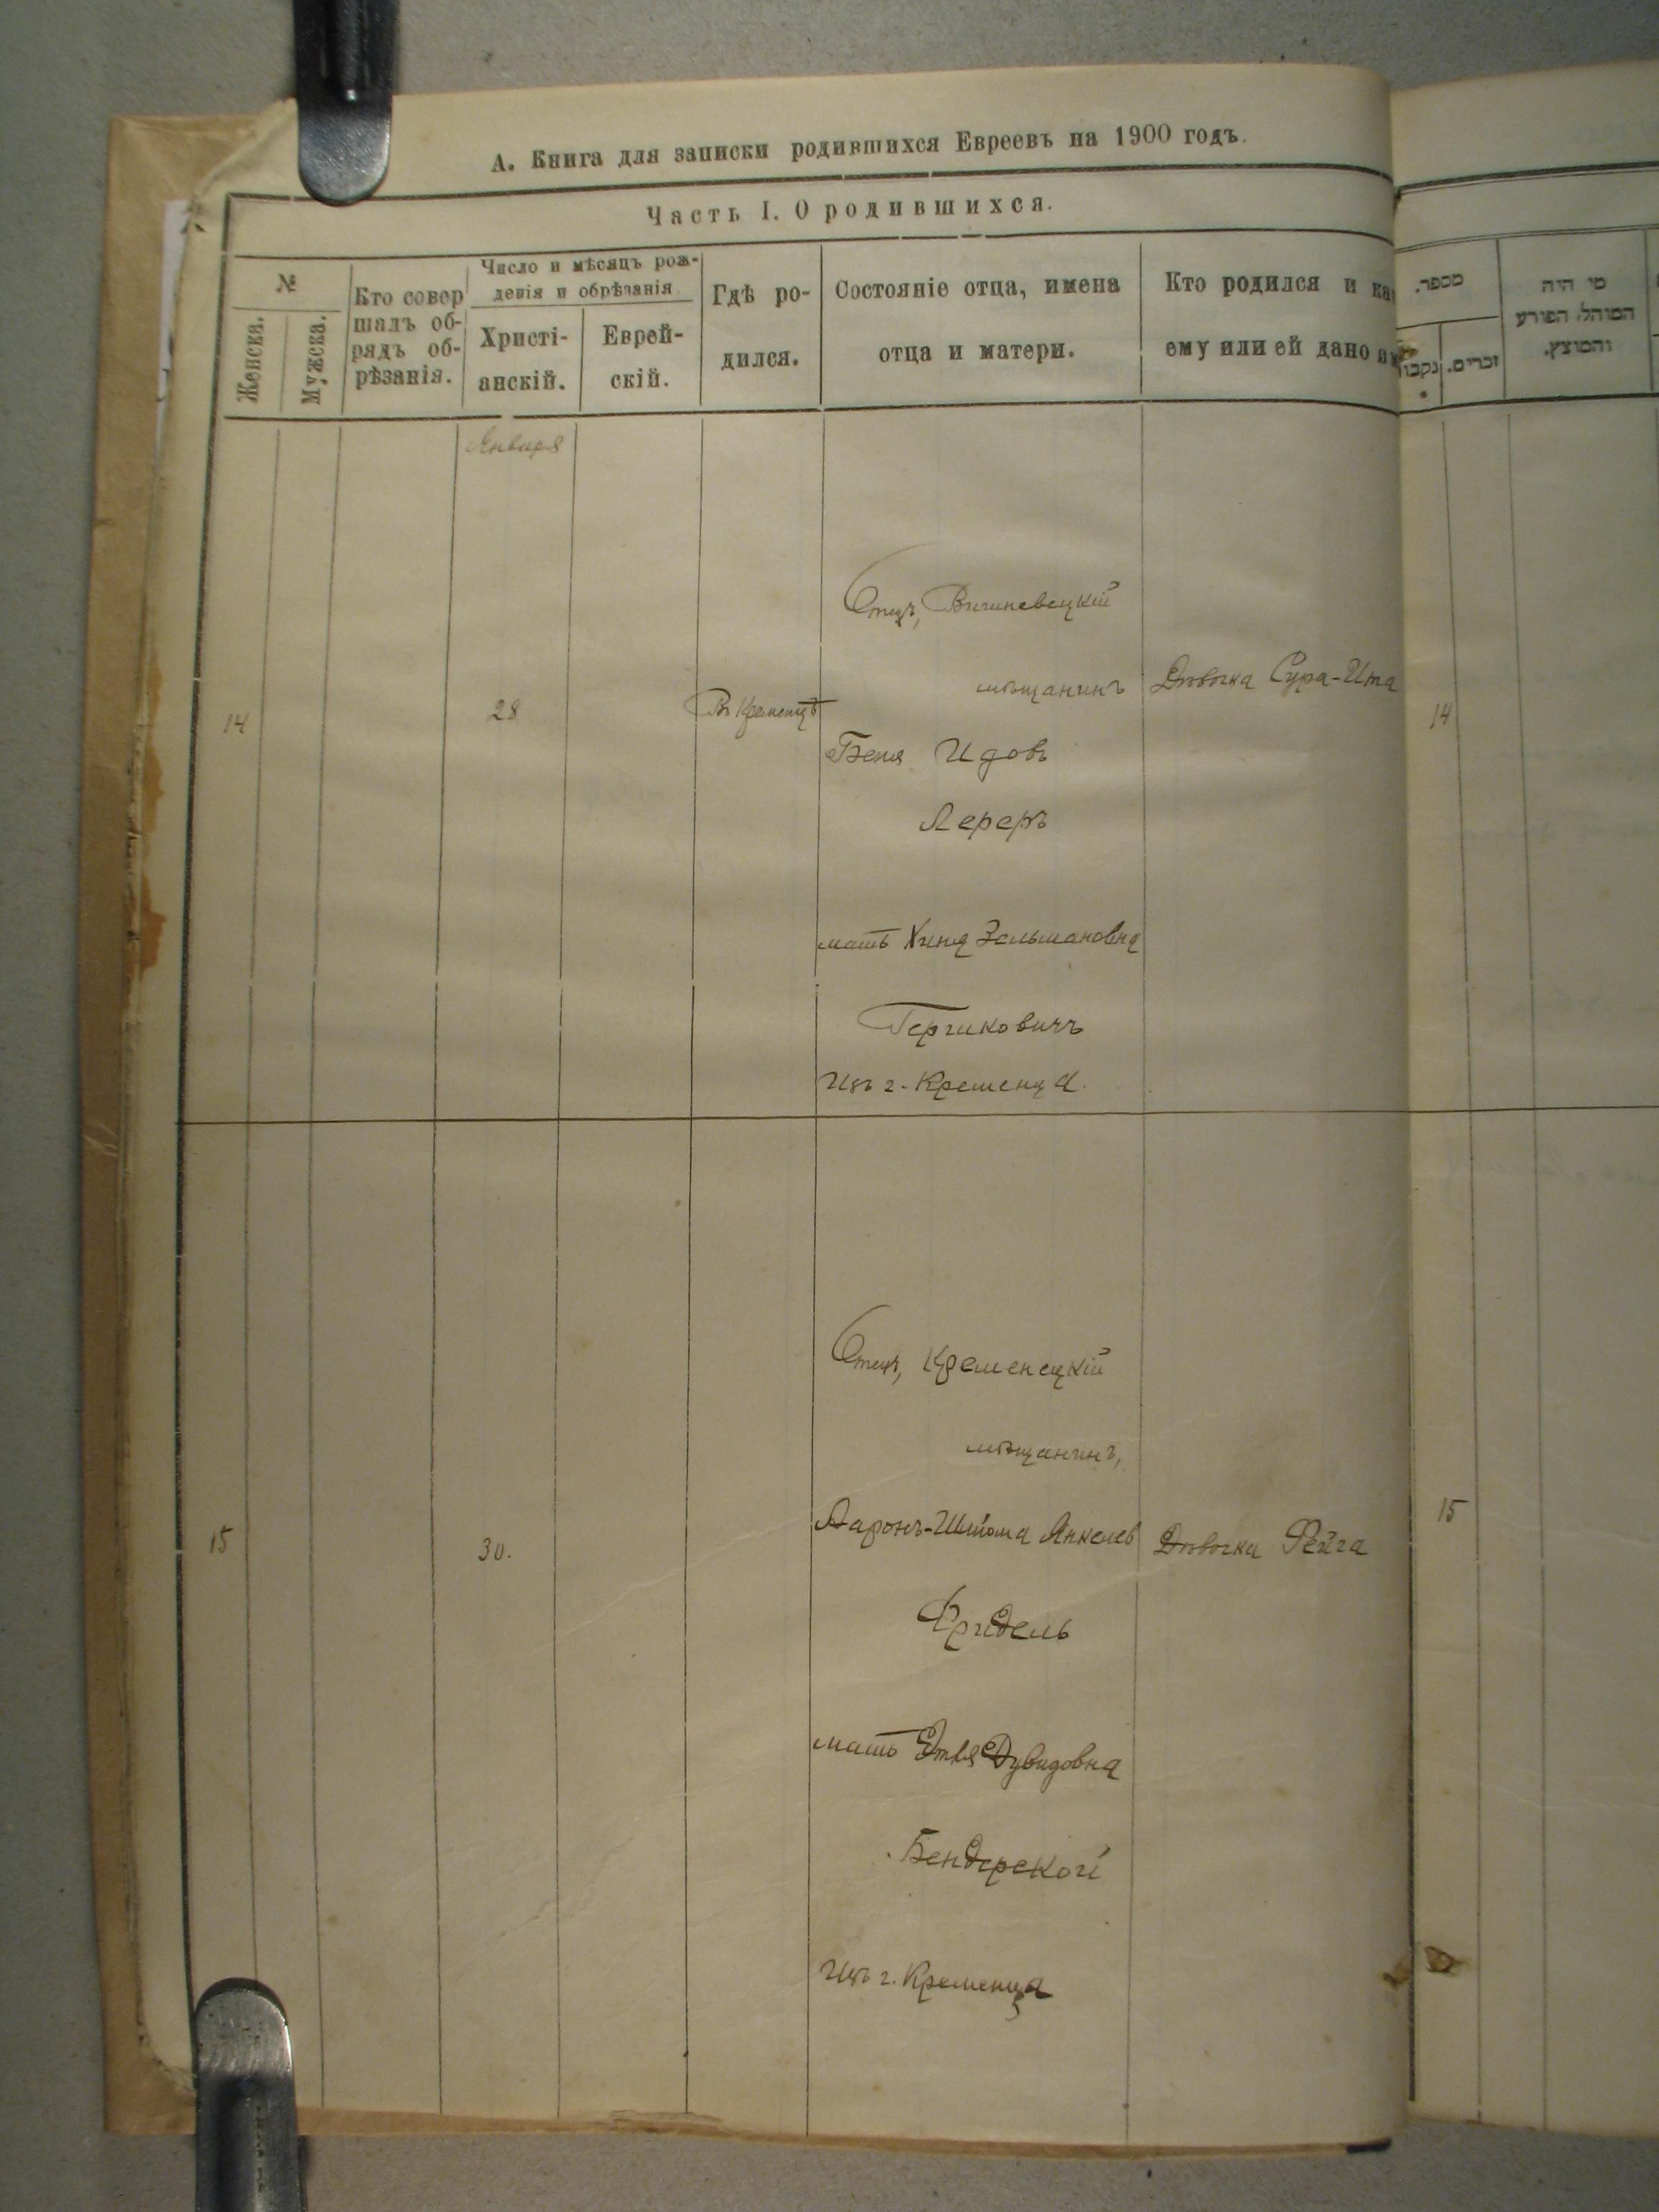 А. Книга для записки родившихся Евреевъ на 1900 годъ.
Часть I. О родившихся.
№
Женска.
Мужска.
Кто совер
шалъ об-
рядъ об-
рѣзанія.
Число и мѣсяцъ рож-
денія и обрѣзанія.
Христі-
анскій.
Еврей-
скій.
Гдѣ ро-
дился.
Состояніе отца, имена
отца и матери.
Кто родился и ка
ему или ей дано им
מספר.
זכרים.
נקבו
מי היה
המוהל, הפורע
והמוצץ.
Января
14
28
Въ Кременцѣ
Отецъ, Вишневецкій
мѣщанинъ
Беня Идовъ
Лереръ
мать Хиня Зельмановна
Гершковичъ
Изъ г. Кременца.
Дѣвочка Сура-Ита
14
15
30.
Отецъ, Кременецкій
мѣщанинъ,
Ааронъ-Шлёма Янкелев
Фридель
мать Этля Дувидовна
Бендерской
Изъ г. Кременца
Дѣвочка Фейга
15